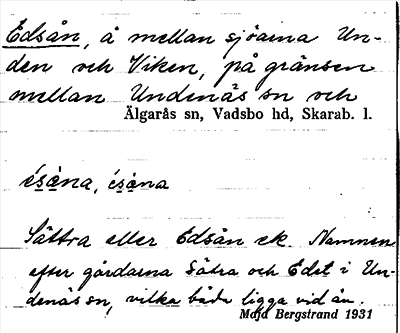 Edsån, å mellan sjöarna Un-
den och Viken, på gränsen
mellan Undenäs sn och
Älgarås sn, Vadsbo hd, Skarab. l.
Sättra eller Edsån ek. Namnen
efter gårdarna Sätra och Edet i Un-
denäs sn, vilka båda ligga vid ån.
Maja Bergstrand 1931